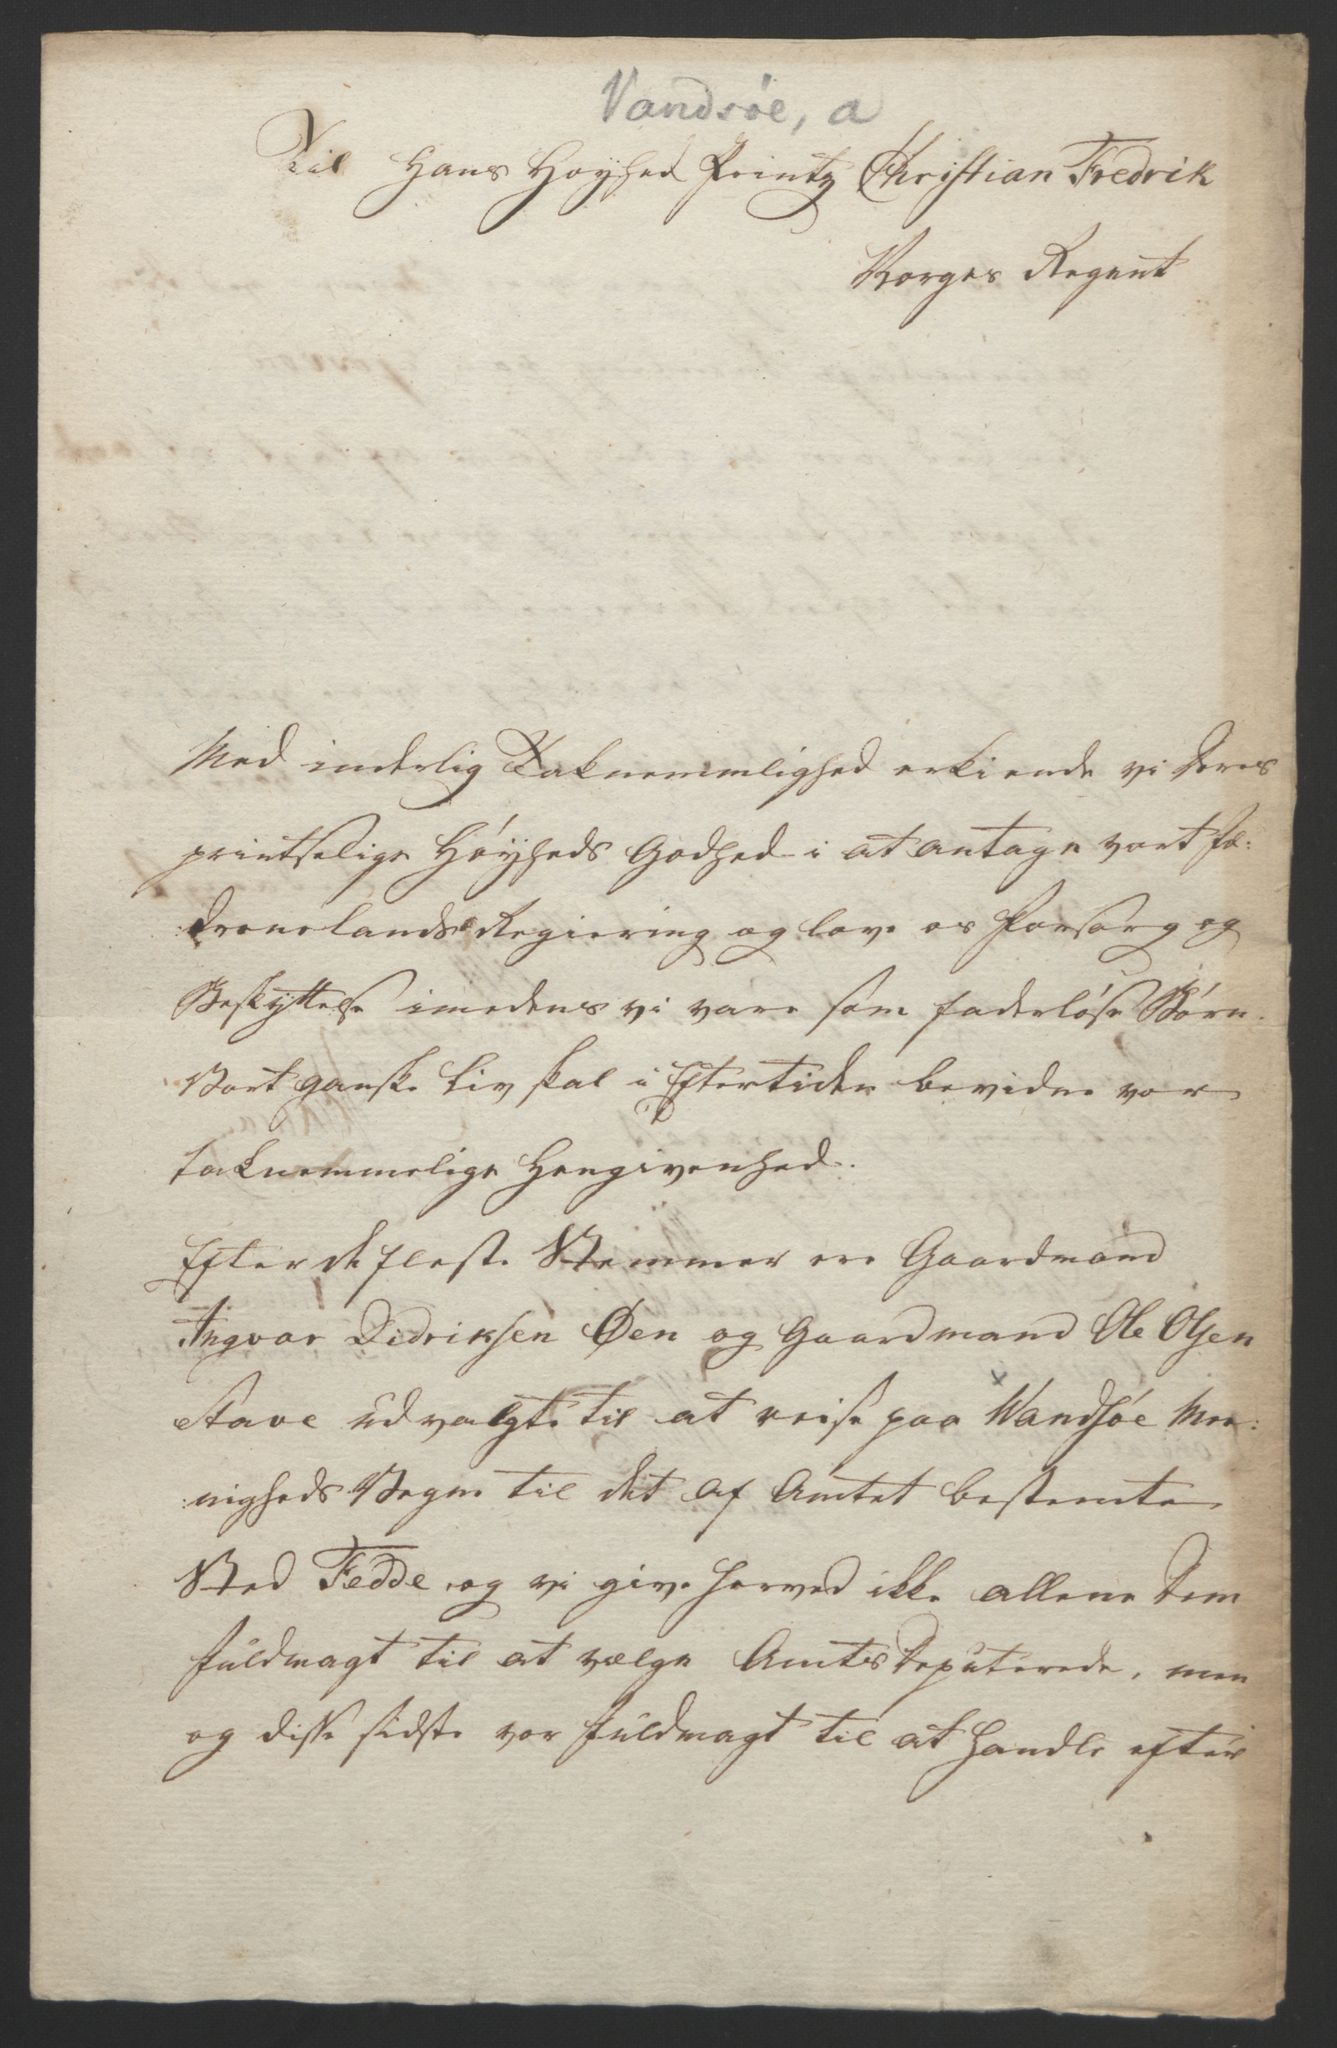 Vandsøe, a
Til Hans Høyhed Printz Christian Fredrik
Norges Regent
Med inderlig Taknemmlighed erkiende vi Deres
printselige Høyheds Godhed i at antage vort Fæ:
:drenelands Regiering og love os Forsorg og
Beskyttelse imedens vi vare som faderløse Børn.
Vort ganske Liv skal i Eftertiden bevidne vor
taknemmelige Hengivenhed.
Efter de fleste Stemmer ere Gaardmand
Ingvar Didriksen Øen og Gaardmand Ole Olsen
Stave udvalgte til at reise paa Wandsøe Mee:
:nigheds Vegne til det af Amtet bestemte
Sted Fedde, og vi give herved ikke allene dem
Fuldmagt til at vælge Amts Deputerede, men
og disse sidste vor Fuldmagt til at handle efter